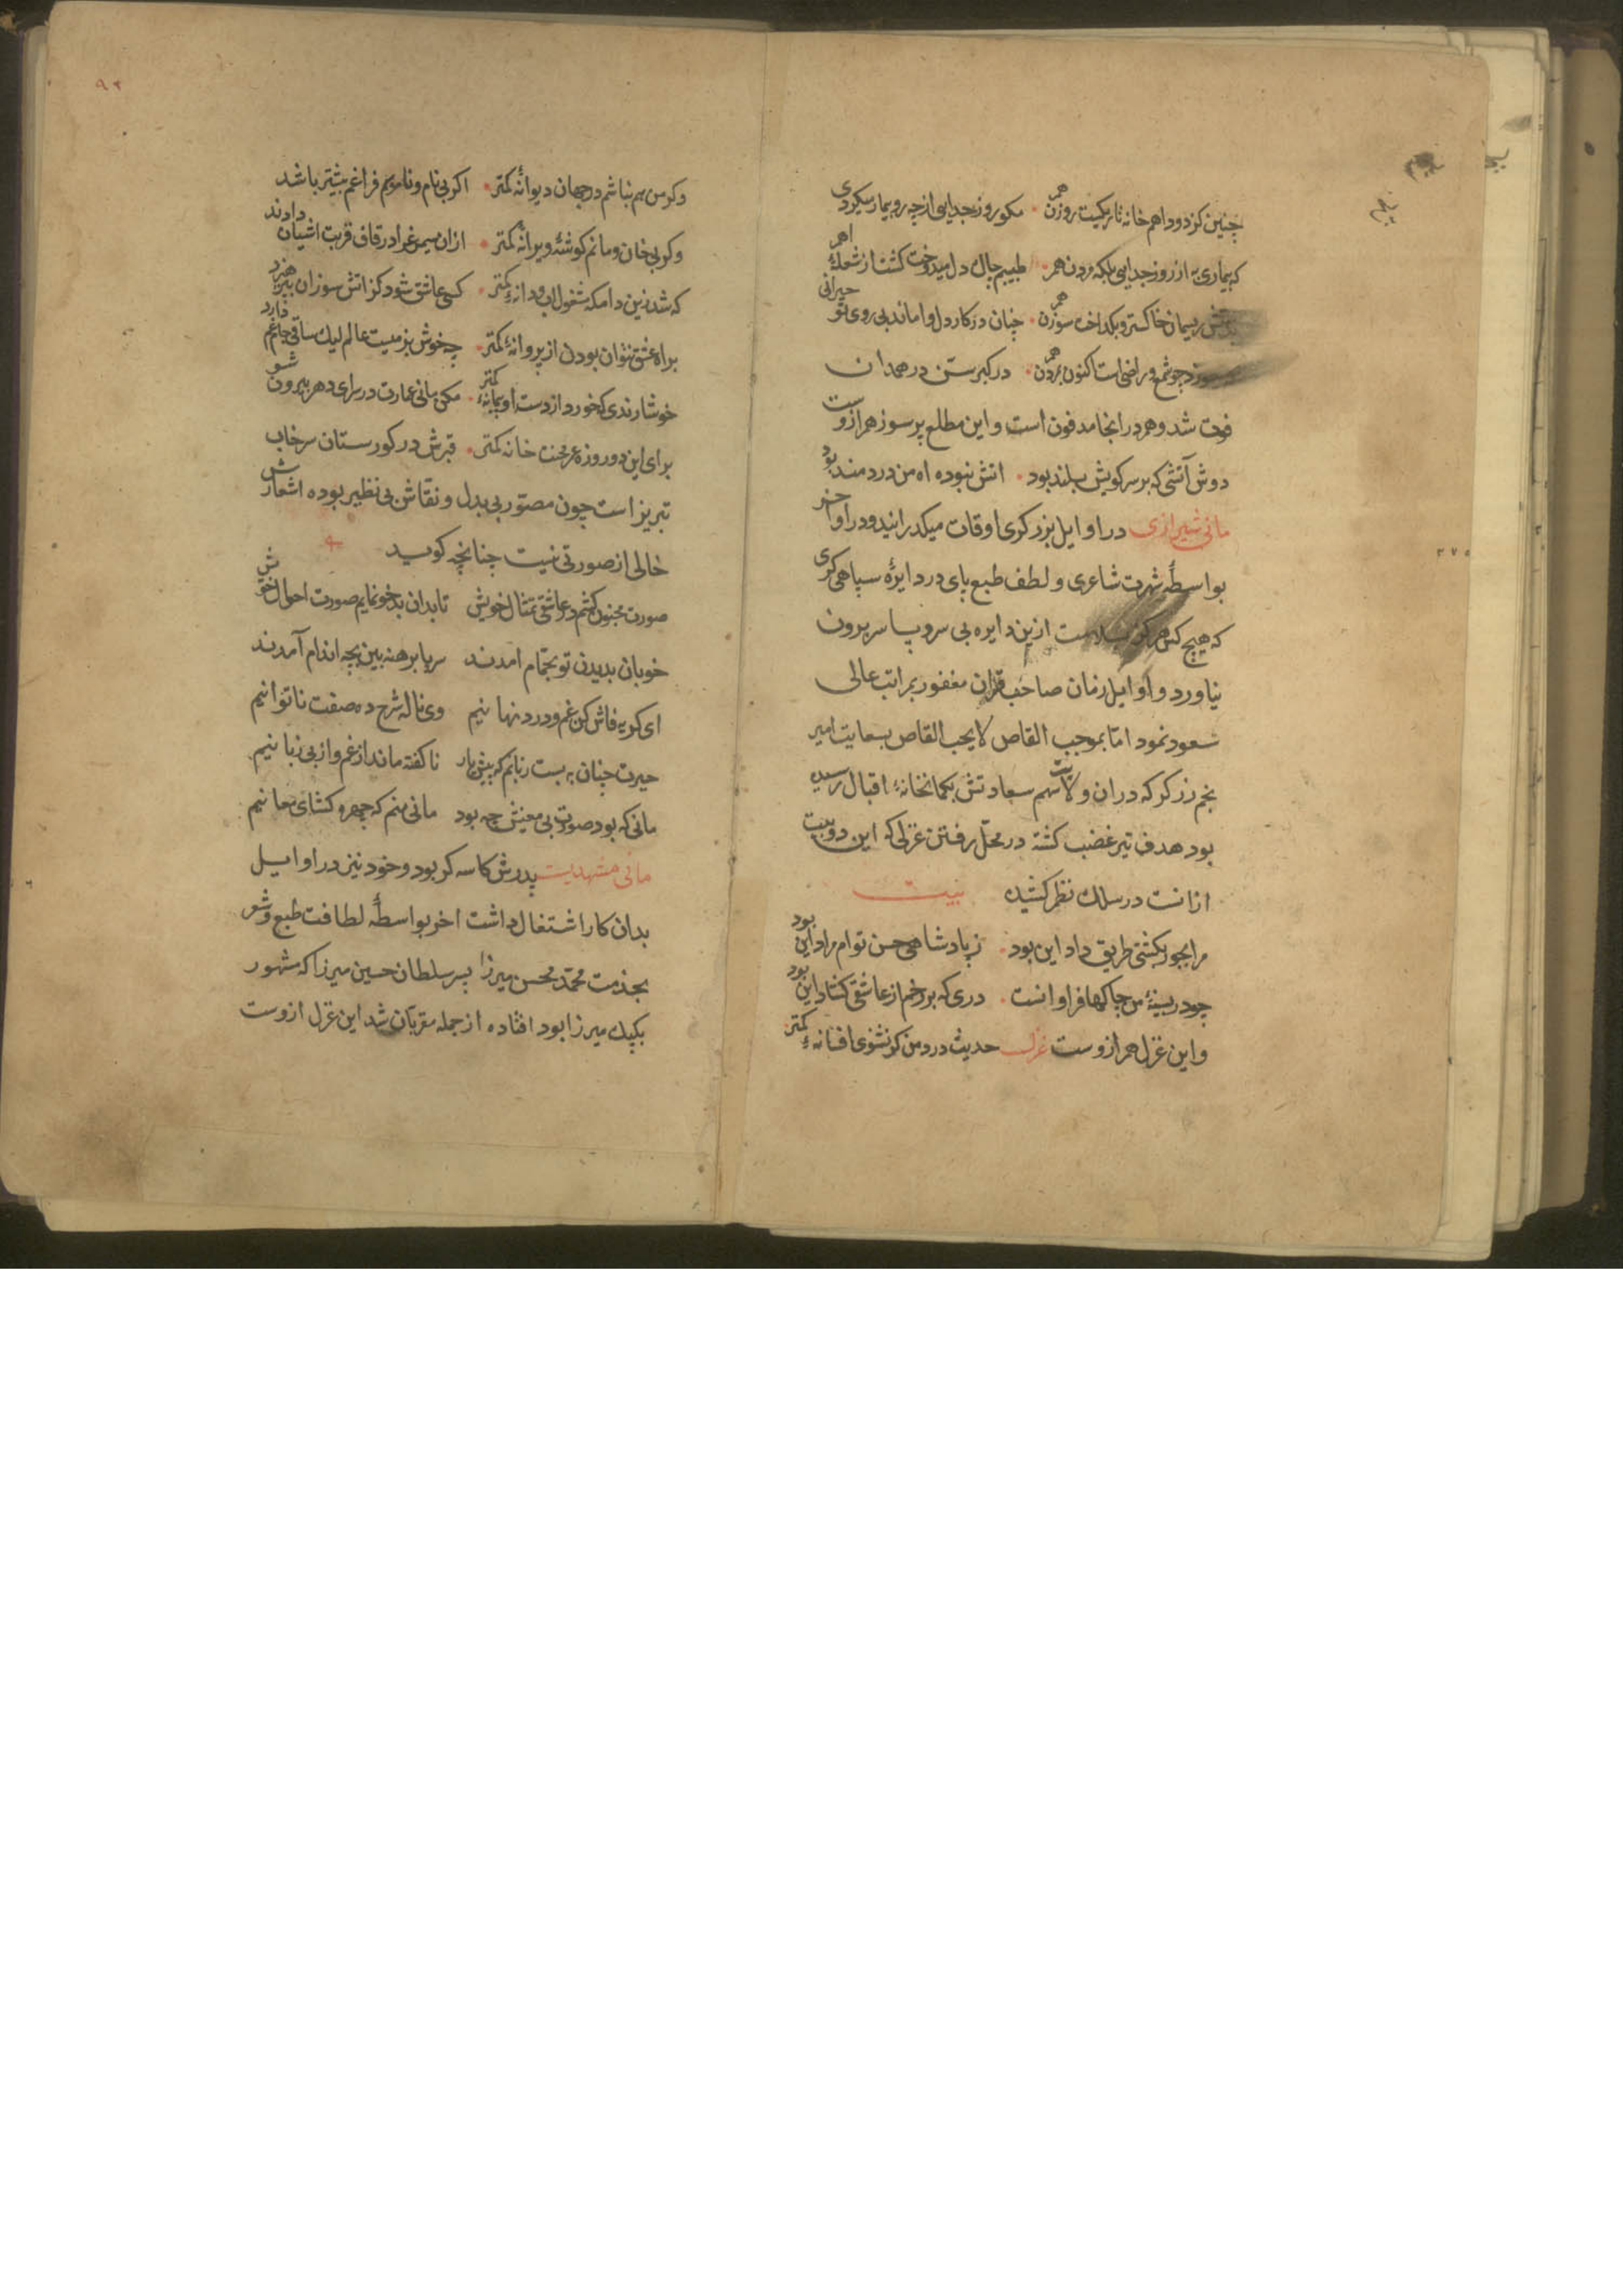 چنین کز دود اهم خانه تاریکیست روزن هم مکو روز جدایی از چه رو بیمار میکردی
که بیماری به از روز جدایی بلکه مردن هم طبیبم چاک دل میدوخت کشت از شعلهٔ اهم
ریسمان خاکستر و بکداخت سوزن هم چنان در کار دل واماند بی روی تو حیرانی
چو شمع و راضی است اکنون بمردن هم در کبر سن در همدان
فوت شد و هم در انجا مدفون است و این مطلع پر سوز هم ازوست
دوش آتشی که بر سر کویش بلند بود اتش نبوده اه من دردمند بود
مانی شیرازی در اوایل بزرکری اوقات میکذرانید و در اواخر
بواسطهٔ شهرت شاعری و لطف طبع پای در دایرهٔ سپاهی کری
که هیچ کس هرکز بسلامت ازین دایره بی سر و پا سر برون
نیاورد و اوایل زمان صاحب قران مغفور بمراتب عالی
صعود نمود اما بموجب القاص لا یحب القاص بسعایت امیر
نجم زرکر که در ان ولایت سهم سعادتش بکمانخانهٔ اقبال رسیده
بود هدف تیر غضب کشته در محل رفتن غزلی که این دو بیت
ازانست در سلک نظم کشیده بیت
مرا بجور بکشتی طریق داد این بود ز پادشاهی حسن توام مراد این بود
چو در سینهٔ من چاکها فراوانست دری که بر رخم از عاشقی کشاد این بود
و این غزل هم ازوست غزل حدیث درد من کر نشنوی افسانهٔ کمتر
۳۷۵
۹۲
وکر من هم نباشم در جهان دیوانهٔ کمتر اکر بی نام و ناموسم فراغم بیشتر باشد
وکر بی خان و مانم کوشهٔ ویرانهٔ کمتر ازان سیمرغ را در قاف قربت اشیان دادند
که شد زین دامکه مشغول اب و دانهٔ کمتر کسی عاشق شود کز اتش سوزان نپرهیزد
براه عشق نتوان بودن از پروانهٔ کمتر چه خوش بزمیست عالم لیک ساقی جام غم دارد
خوشا رندی که خورد از دست او پیمانهٔ کمتر مکن مانی عمارت در سرای دهر بیرون شو
برای این دو روزه عمر محنت خانه کمتر قبرش در کورستان سرخاب
تبریز است چون مصور بی بدل و نقاش بی نظیر بوده اشعارش
خالی از صورتی نیست چنانچه کوید
صورت مجنون کشم در عاشقی تمثال خویش تا بدان بدخو نمایم صورت احوال خویش
خوبان بدیدن تو بحمام امدند سر پا برهنه بین بچه اندام آمدند
ای کریه فاش کن غم و درد نهانیم وی ناله شرح ده صفت ناتوانیم
حیرت چنان ببست زبانم که پیش یار ناکفته ماند از غم و از بی زبانیم
مانی که بود صورت بی معنیش چه بود مانی منم که چهره کشای معانیم
مانی مشهدیست پدرش کاسه کر بود و خود نیز در اوایل
بدان کار اشتغال داشت اخر بواسطهٔ لطافت طبع و شعر
بخذمت محمد محسن میرزا پسر سلطان حسین میرزا که مشهور
بکپک میرزا بود افتاده از جمله مقربان شد این غزل ازوست